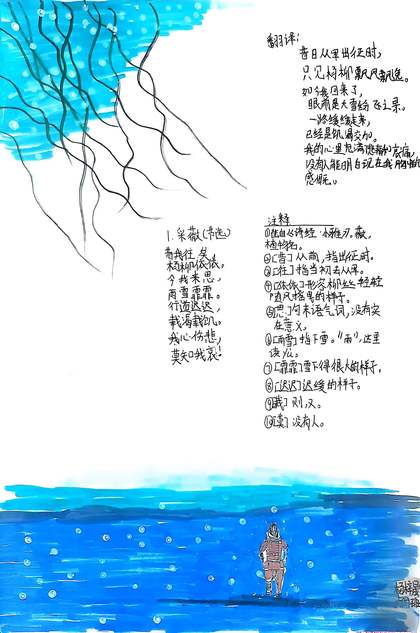 翻译:
昔日从军出征时,
只见杨柳飘风飘逸。
如今我回来了,
眼前是大雪纷飞之景。
一路缓缓走来,
已经是饥渴交加。
我的心里充满悲痛和哀痛,
没有人能明白现在我
感慨。
1.采薇(节选)
昔我往矣,
杨柳依依,
今我来思,
雨雪霏霏。
行道迟迟,
载渴载饥。
我心伤悲,
莫知我哀!
注释
薇,
植物名。
②[昔]从前,指出征时。
③[往]指当初去从军。
④[依依]形容柳丝轻轻
随风摇曳的样子。
⑤[思]句末语气词,没有实
在意义。
⑥[雨雪]指下雪。“雨”,这里
读yù。
⑦[霏霏]雪下得很大的样子。
⑧[迟迟]迟缓的样子。
⑨[载]则,又。
⑩[莫]没有人。